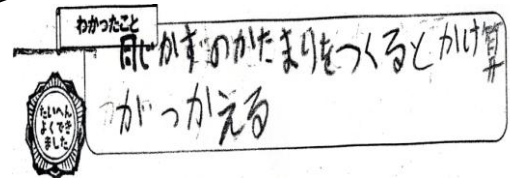 わかったこと
同じかずのかたまりをつくるとかけ算
がつかえる
たいへん
よくでき
ました